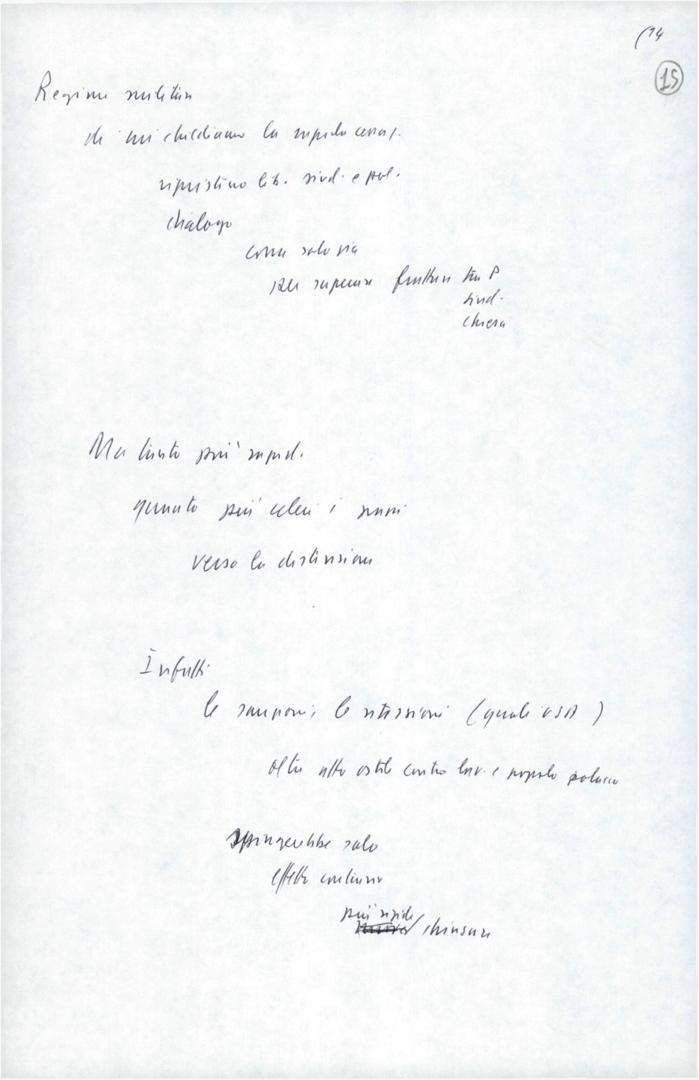 (14
15
Regime militare
di cui chiediamo la rapida cessaz.
ripristino lib. sind. e pol.
dialogo
come sola via
per superare frattura tra P
sind.
chiesa
Ma tanto più rapid.
quanto più celeri i passi
verso la distensione
Infatti
le sanzioni, le ritorsioni (quali USA)
oltre atto ostile contro lav. e popolo polacco
spingerebbe solo
effetto contrario
più rigide
chiusure